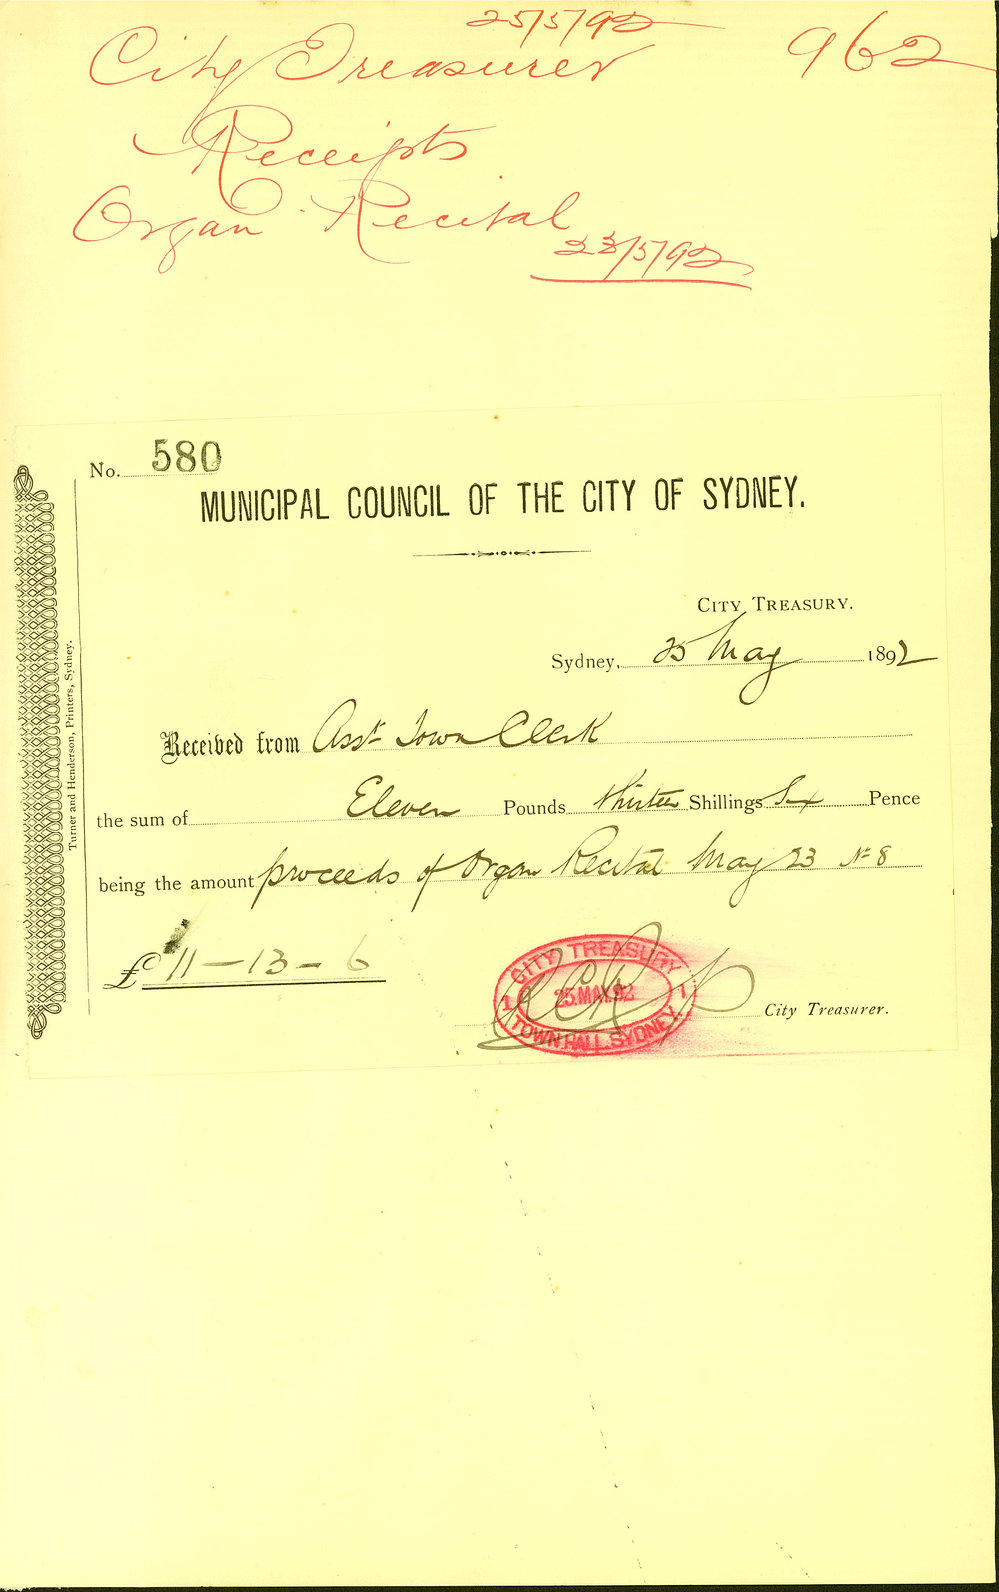 25/5/92
City Treasurer 962
Receipts
Organ Recital
23/5/92
No. 580
MUNICIPAL COUNCIL OF THE CITY OF SYDNEY.
CITY TREASURY.
Sydney, 25 May 1892
Received from Asst Town Clerk
the sum of Eleven Pounds thirteen Shillings Six Pence
being the amount proceeds of Organ Recital May 23 No 8
£ 11-13-6
CITY TREASURY
1 25.MAY.92 1
TOWN HALL.SYDNEY.
City Treasurer.
Turner and Henderson, Printers, Sydney.